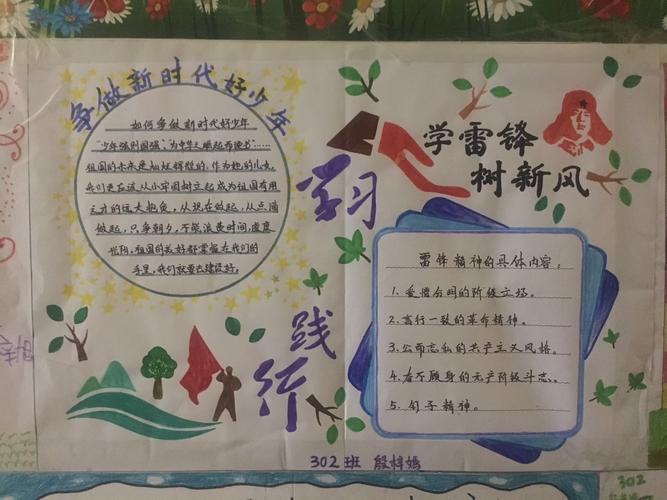 争做新时代好少年
如何争做新时代好少年
“少年强则国强”，“为中华之崛起而读书”……
祖国的未来是灿烂辉煌的，作为她的儿女，
我们更应该从小牢固树立起成为祖国有用
之才的远大抱负，从现在做起，从点滴
做起，只争朝夕，不能浪费时间，虚度
光阴，祖国的美好都掌握在我们的
手里，我们就要去建设好。
学习
践行
学雷锋
树新风
雷锋精神的具体内容。
1. 爱憎分明的阶级立场。
2. 言行一致的革命精神。
3. 公而忘私的共产主义风格。
4. 奋不顾身的无产阶级斗志。
5. 钉子精神。
302班 殷梓嫣
302